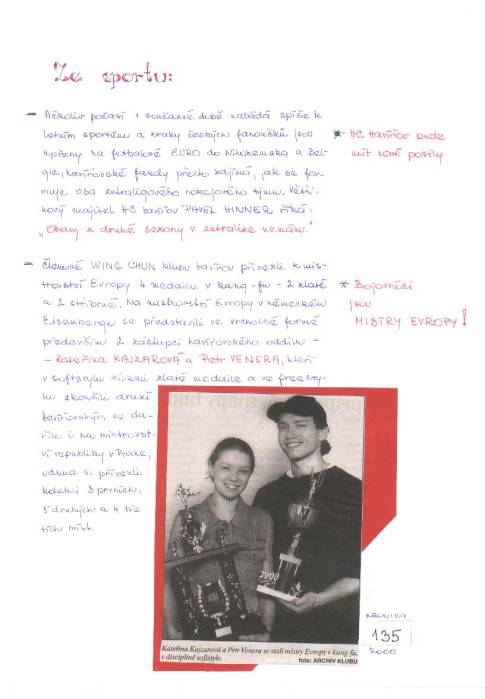 Ze sportu:
- Ačkoliv počasí v současné době nabádá spíše k
letním sportům a zraky českých fanoušků jsou
upřeny na fotbalové EURO do Nizozemska a Bel-
gie, havířovské fandy přesto zajímá, jak se for-
muje osa extraligového hokejového týmu. Větši-
nový majitel HC Havířov PAVEL HINNER říká:
"Obavy z druhé sezony v extralize nemám."
* HC Havířov bude
mít nové posily
- Členové WING CHUN klubu Havířov přivezli z mis-
trovství Evropy 4 medaile v kung-fu - 2 zlaté
a 2 stříbrné. Na mistrovství Evropy v německém
Eisenbergu se představili ve vrcholné formě
především 2 zástupci havířovského oddílu -
- Kateřina KAJZAROVÁ a Petr VENERA, kteří
v softstylu získali zlaté medaile a ve freesty-
lu skončili druzí.
Havířovským se da-
řilo i na mistrovst-
ví republiky v Praze,
odkud si přivezli
kolekci 8 prvních,
5 druhých a 4 tře-
tích míst.
* Bojovníci
jsou
MISTRY EVROPY!
2000
Kateřina Kajzarová a Petr Venera se stali mistry Evropy v kung-fu,
v disciplíně softstyle.
foto: ARCHIV KLUBU
KRONIKA
135
2000